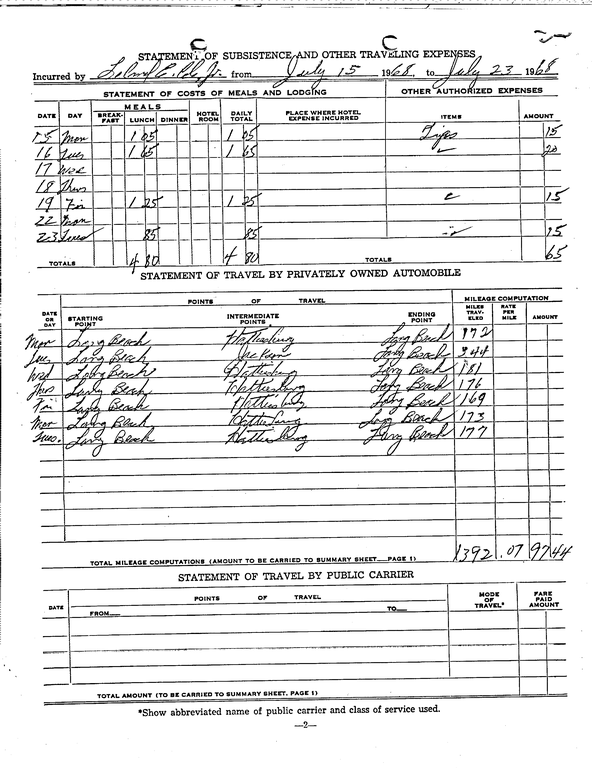 C C
STATEMENT OF SUBSISTENCE AND OTHER TRAVELING EXPENSES
Incurred by from July 15 1968, to July 23 1968
STATEMENT OF COSTS OF MEALS AND LODGING OTHER AUTHORIZED EXPENSES
DATE DAY MEALS BREAK-FAST LUNCH DINNER HOTEL ROOM DAILY TOTAL PLACE WHERE HOTEL EXPENSE INCURRED ITEMS AMOUNT
15 Mon 1 05 1 05 Tips 15
16 Tues 1 65 1 65 20
17 Wed
18 Thurs
19 Fri 1 25 1 25 15
22 Mon
23 Tues 85 85 15
TOTALS 4 80 4 80 TOTALS 65
STATEMENT OF TRAVEL BY PRIVATELY OWNED AUTOMOBILE
DATE OR DAY POINTS OF TRAVEL MILEAGE COMPUTATION
STARTING POINT INTERMEDIATE POINTS ENDING POINT MILES TRAV-ELED RATE PER MILE AMOUNT
Mon Long Beach Hattiesburg Long Beach 172
Tue. Long Beach Jackson Long Beach 344
Wed Long Beach Hattiesburg Long Beach 181
Thurs Long Beach Hattiesburg Long Beach 176
Fri Long Beach Hattiesburg Long Beach 169
Mon Long Beach Hattiesburg Long Beach 173
Tues. Long Beach Hattiesburg Long Beach 177
TOTAL MILEAGE COMPUTATIONS (AMOUNT TO BE CARRIED TO SUMMARY SHEET—PAGE 1) 1392 .07 97 44
STATEMENT OF TRAVEL BY PUBLIC CARRIER
DATE POINTS OF TRAVEL MODE OF TRAVEL* FARE PAID AMOUNT
FROM TO
TOTAL AMOUNT (TO BE CARRIED TO SUMMARY SHEET, PAGE 1)
*Show abbreviated name of public carrier and class of service used.
—2—